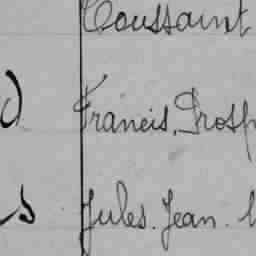 Toussaint
Francis, Prosp
Jules. Jean.